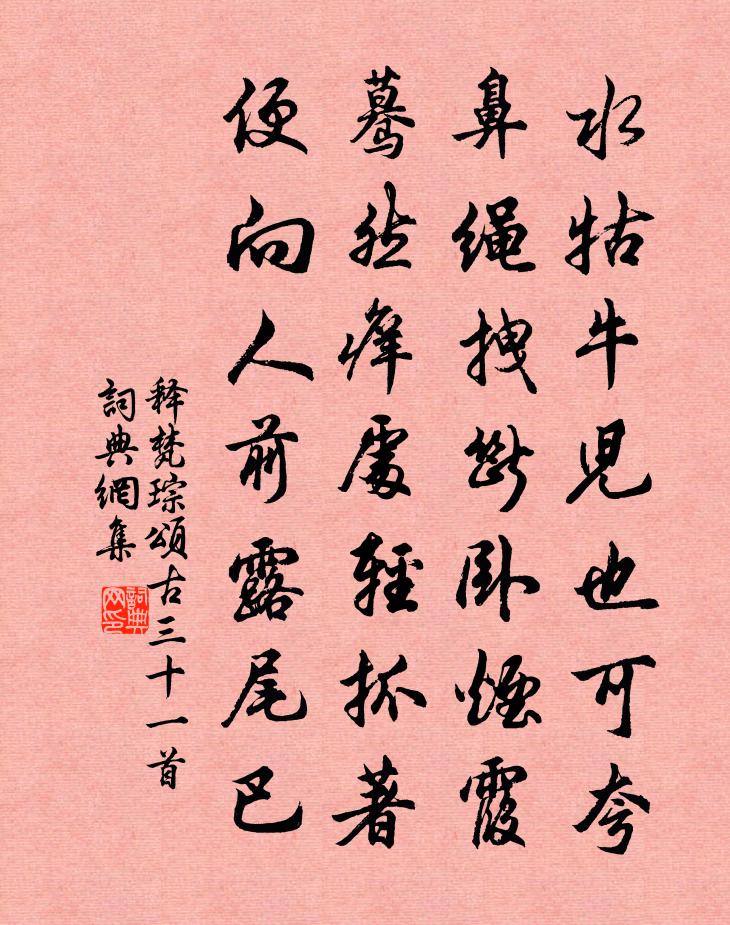 水牯牛児也可夸
鼻绳拽断卧煙霞
蓦然痒處輕抓著
便向人前露尾巴
释梵琮頌古三十一首
詞典網集
詞典网印